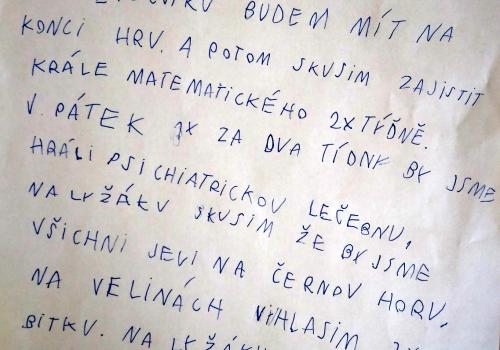 BUDEM MÍT NA
KONCI HRV. A POTOM SKUSIM ZAJISTIT
KRÁLE MATEMATICKÉHO 2X TÝDNĚ.
V PÁTEK 1X ZA DVA TÍDNY BY JSME
HRÁLI PSICHIATRICKOV LEČEBNV,
NA LYŽÁKV SKUSIM ŽE BY JSME
VŠICHNI JELI NA ČERNOV HORV,
NA VELINÁCH VYHLASIM
BITKV. NA LYŽÁKV